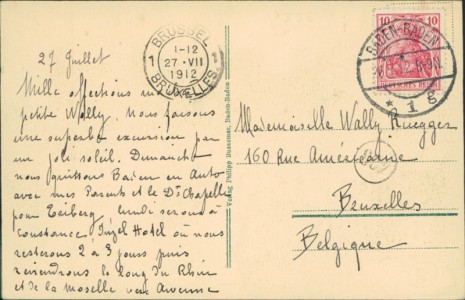 27 Juillet
Mille affections ma
petite Wally. Nous faisons
une superbe excursion par
un joli soleil. Dimanche
nous quittons Baden en Auto
avec mes Parents et le Dr Chapelle
pour Freiberg, lundi serons à
Constance, Inzel Hotel où nous
resterons 2 a 3 jours puis
reviendrons le long du Rhin
et de la Moselle vers
BRUSSEL
1 1-12 1
27 · VII
1912
BRUXELLES
Verlag Philipp Baden-Baden
10 10
BADEN-BADEN
* 1 g
Mademoiselle Wally Ruegger
160 Rue Américaine
Bruxelles
Belgique